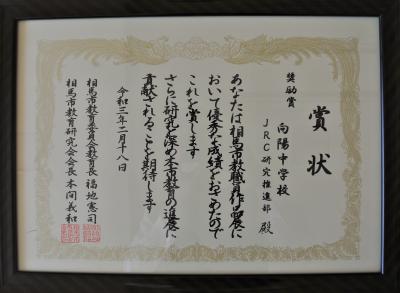 賞状
奨励賞
向陽中学校
JRC研究推進部 殿
あなたは相馬市教職員作品展に
おいて優秀な成績をおさめたので
これを賞します
さらに研究を深め本市教育の進展に
貢献されることを期待します
令和三年二月十八日
相馬市教育委員会教育長 福地憲司
相馬市教育研究会会長 本間義和